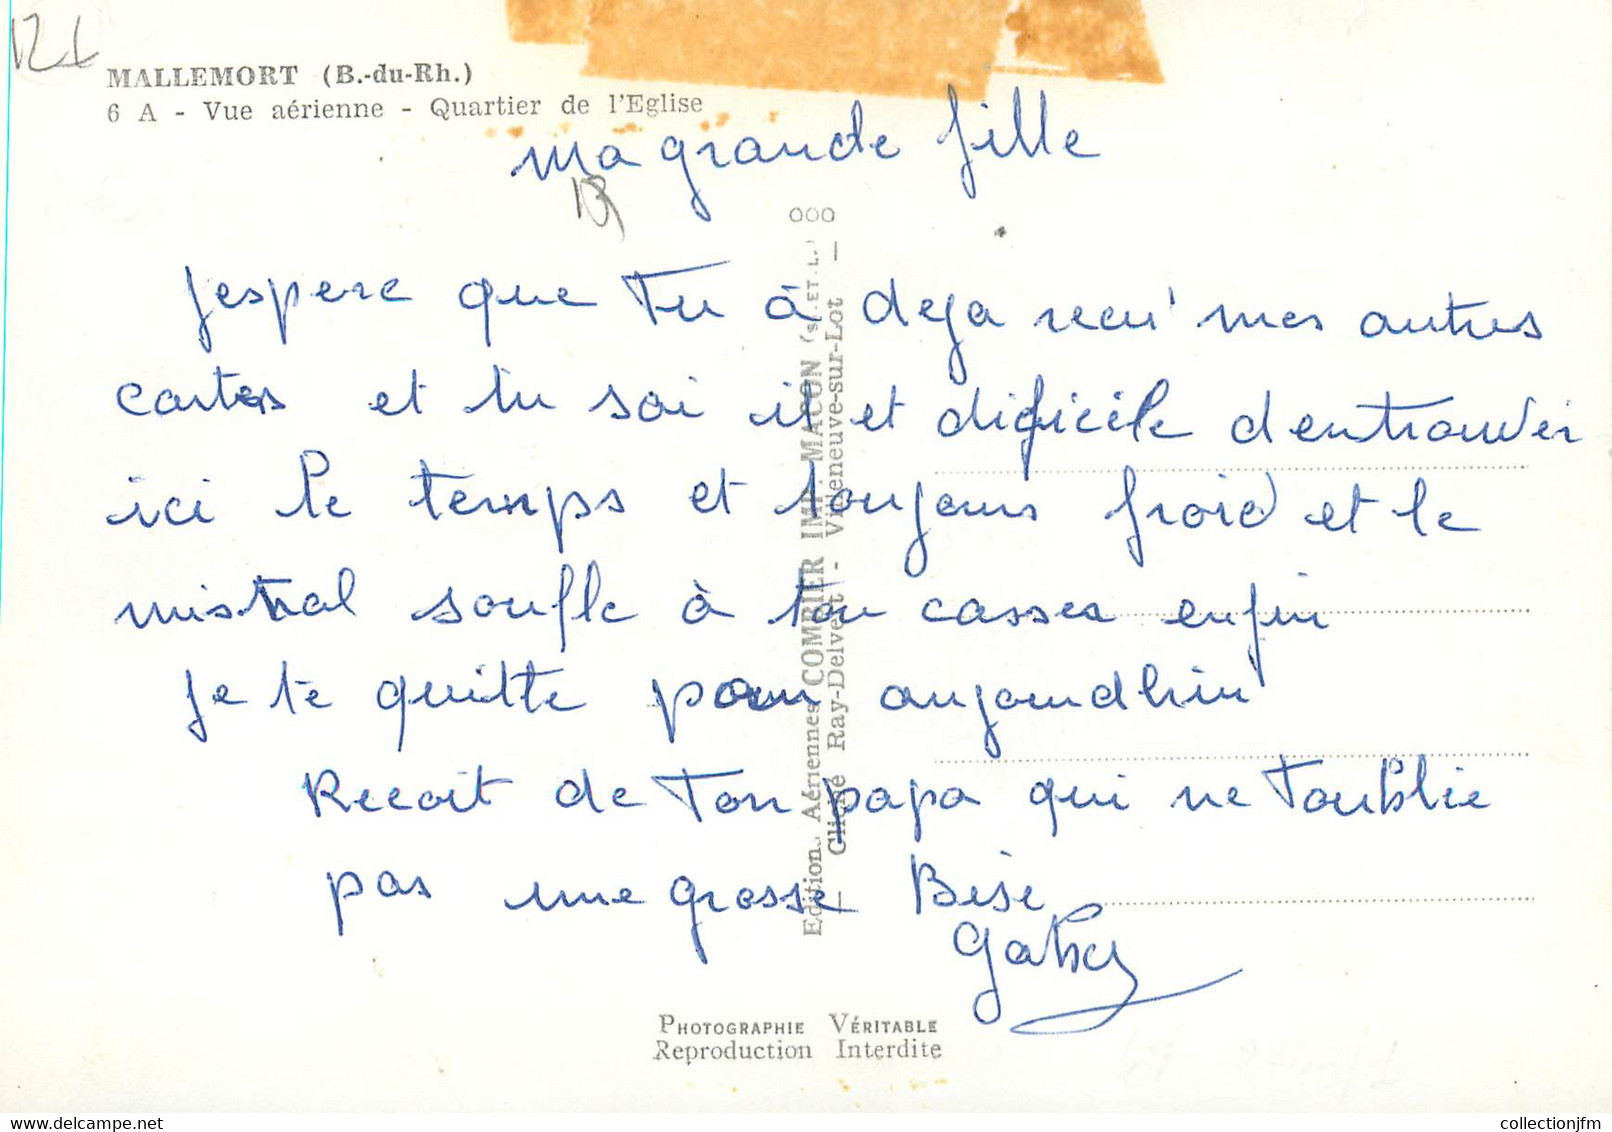 MALLEMORT (B.-du-Rh.)
6 A - Vue aérienne - Quartier de l'Eglise
ma grande fille
Jespere que Tu à deja recu mes autres
cartes et tu sai il et dificile dentrouver
ici le temps et toujours froid et le
mistral soufle à tou casser enfin
Je te quitte pour aujourdhui
Recoit de Ton papa qui ne Toublie
pas une grosse Bise
Gaby
000
Edition Aériennes COMBIER IMP. MACON (S. ET. L.)
— Cliché Ray-Delvert - Villeneuve-sur-Lot —
PHOTOGRAPHIE VÉRITABLE
Reproduction Interdite
www.delcampe.net
collectionjfm